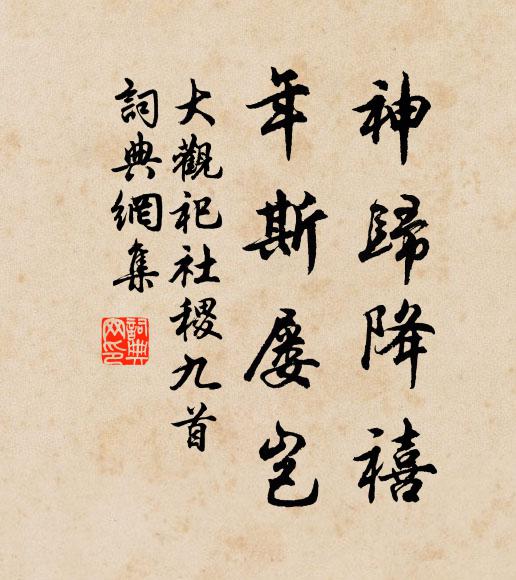 神歸降禧
年斯屡岂
大觀祀社稷九首
詞典網集
詞典網印